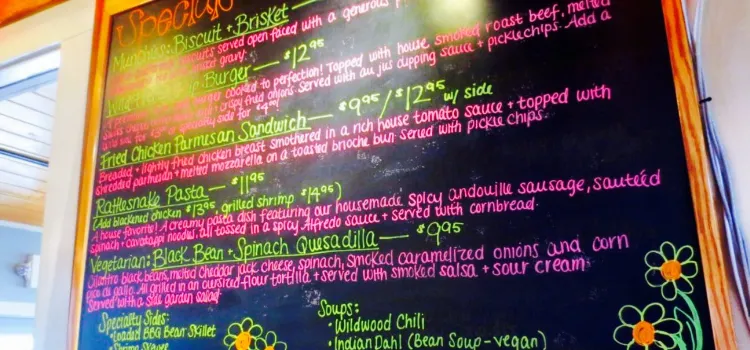 Specials
Munchies: Biscuit + Brisket—
biscuits served open faced with a generous
gravy.
Burger — $12.95
burger cooked to perfection! Topped with house smoked roast beef, melted
crispy fried onions. Served with au jus dipping sauce + pickle chips. Add a
side for
Fried Chicken Parmesan Sandwich — $9.95 / $12.95 w/ side
Breaded + lightly fried chicken breast smothered in a rich house tomato sauce + topped with
shredded parmesan + melted mozzarella on a toasted brioche bun. Served with pickle chips.
Rattlesnake Pasta — $11.95
(Add blackened chicken $13.95, grilled shrimp $14.95)
A house favorite! A creamy pasta dish featuring our housemade spicy andouille sausage, sautéed
spinach + cavatappi noodles, all tossed in a spicy Alfredo sauce + served with cornbread.
Vegetarian: Black Bean + Spinach Quesadilla — $9.95
Cilantro black beans, melted cheddar jack cheese, spinach, smoked caramelized onions and corn
pico de gallo. All grilled in an oversized flour tortilla + served with smoked salsa + sour cream.
Served with a side garden salad
Specialty Sides:
• Loaded BBQ Bean Skillet
• Shrimp
Soups:
• Wildwood Chili
• Indian Dahl (Bean Soup-vegan)